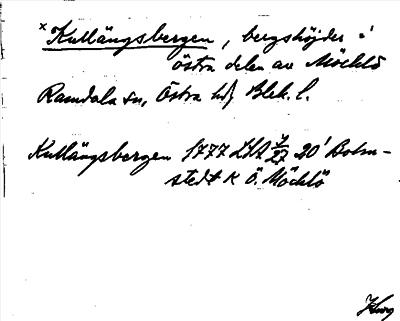 x Kullängsbergen, bergshöjder i
östra delen av Möcklö
Ramdala sn, Östra hd, Blek. l.
Kullängsbergen 1777 LSA 20' Bolm-
stedt K Ö. Möcklö